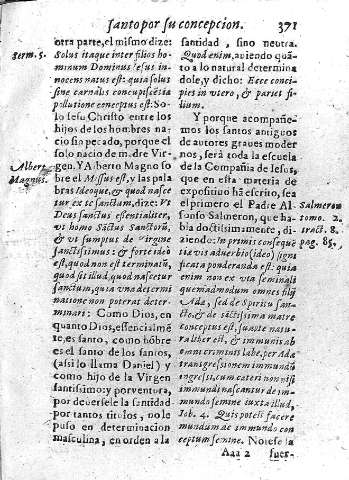 santo por su concepcion. 371
otra parte, el mismo dize:
Serm. 5.
Solus itaque inter filios ho-
minum Dominus Iesus in-
nocens natus est: quia solus
sine carnalis concupiscẽtia
pollutione conceptus est: So-
lo Iesu Christo entre los
hijos de los hombres na-
cio sin pecado, porque el
solo nacio de madre Vir-
gen. Y Alberto Magno so
Albert.
Magnus.
bre el Missus est, y las pala
bras Ideoque, & quod nasce
tur ex te sanctum, dize: Vt
Deus sanctus essentialiter,
vt homo Sãctus Sanctorũ,
& vt sumptus de Virgine
sanctissimus: & forte ideò
est, quod non est terminatũ,
quid sit illud, quod nascetur
sanctum, quia vna determi
natione non poterat deter-
minari: Como Dios, en
quanto Dios, essencialmẽ
te, es santo, como hõbre
es el santo de los santos,
(assi lo llama Daniel) y
como hijo de la Virgen
santissimo: y por ventura,
por deuersele la santidad
por tantos titulos, no le
puso en determinacion
masculina, en orden a la
santidad, sino neutra.
Quod enim, auiendo quã-
to a lo natural determina
dole, y dicho: Ecce conci-
pies in vtero, & paries fi-
lium.
Y porque acompañe-
mos los santos antiguos
de autores graues moder
nos, serà toda la escuela
de la Compañia de Iesus,
que en esta materia de
expositiuo hà escrito, sea
el primero el Padre Al-
fonso Salmeron, que ha-
bla doctissimamente, di-
ziendo: In primis conseque
Salmeron
tomo. 2.
tract. 8.
pag. 85.
tiæ vis aduerbio (ideo) sig-
nificata ponderanda est: quia
enim non ex vta seminali
quemadmodum omnes filij
Adæ, sed de Spiritu San-
cto, & de sãctissima matre
conceptus est, suapte natu-
ra lther est, & immunis ab
omni criminis labe, per Adæ
transgressionem in mundũ
ingressi, cum cæteri non nisi
ingrediantur immundi de
mundo semine iuxta illud,
Iob. 4. Quis potest facere
mundum de immundo con
ceptum semine. No ese la
Aaa 2 suer-